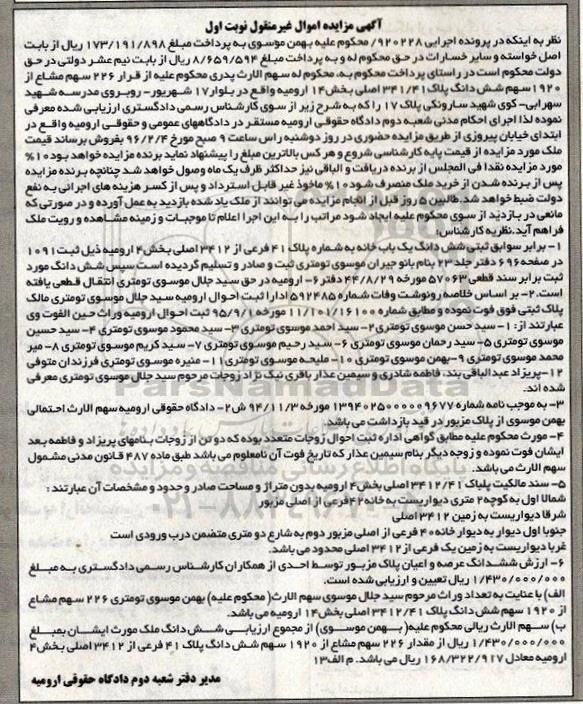 آگهی مزایده اموال غیرمنقول نوبت اول
نظر به اینکه در پرونده اجرایی ۹۲۰۲۲۸/ محکوم علیه بهمن موسوی به پرداخت مبلغ ۱۷۳/۱۹۱/۸۹۸ ریال از بابت
اصل خواسته و سایر خسارات در حق محکوم له و به پرداخت مبلغ ۸/۶۵۹/۵۹۴ ریال از بابت نیم عشر دولتی در حق
دولت محکوم است در راستای پرداخت محکوم به، محکوم له سهم الارث پدری محکوم علیه از قرار ۲۲۶ سهم مشاع از
۱۹۲۰ سهم شش دانگ پلاک ۳۴۱/۴۱ اصلی بخش ۱۴ ارومیه واقع در بلوار ۱۷ شهریور- روبروی مدرسه شهید
سهرابی- کوی شهید سارونکی پلاک ۱۷ را که به شرح زیر از سوی کارشناس رسمی دادگستری ارزیابی شده معرفی
نموده لذا اجرای احکام مدنی شعبه دوم دادگاه حقوقی ارومیه مستقر در دادگاههای عمومی و حقوقی ارومیه واقع در
ابتدای خیابان پیروزی از طریق مزایده حضوری در روز دوشنبه راس ساعت ۹ صبح مورخ ۹۶/۲/۴ بفروش برساند قیمت
ملک مورد مزایده از قیمت پایه کارشناسی شروع و هر کس بالاترین مبلغ را پیشنهاد نماید برنده مزایده خواهد بود ۱۰%
مورد مزایده نقدا فی المجلس از برنده دریافت و الباقی نیز حداکثر ظرف یک ماه وصول خواهد شد چنانچه برنده مزایده
پس از برنده شدن از خرید ملک منصرف شود ۱۰% ماخوذ غیر قابل استرداد و پس از کسر هزینه های اجرائی به نفع
دولت ضبط خواهد شد. طالبین ۵ روز قبل از انجام مزایده می توانند از ملک یاد شده بازدید به عمل آورده و در صورتی که
مانعی در بازدید از سوی محکوم علیه ایجاد شود مراتب را به این اجرا اعلام تا موجبات و زمینه مشاهده و رویت ملک
فراهم آید. نظریه کارشناس:
۱- برابر سوابق ثبتی شش دانگ یک باب خانه به شماره پلاک ۴۱ فرعی از ۳۴۱۲ اصلی بخش ۴ ارومیه ذیل ثبت ۱۰۹۱
در صفحه ۶۹۶ دفتر جلد ۲۳ بنام بانو جیران موسوی تومتری ثبت و صادر و تسلیم گردیده است سپس شش دانگ مورد
ثبت برابر سند قطعی ۵۷۰۶۳ مورخه ۴۴/۸/۲۹ دفتر ۶- ارومیه در حق سید جلال موسوی تومتری انتقال قطعی یافته
است. ۲- بر اساس خلاصه رونوشت وفات شماره ۵۹۲۴۸۵ ادارا ثبت احوال ارومیه سید جلال موسوی تومتری مالک
پلاک ثبتی فوق فوت نموده و مطابق شماره ۱۱/۱۰۱/۱۶۱۰۰ مورخه ۹۵/۹/۱ ثبت احوال ارومیه وراث حین الفوت وی
عبارتند از: ۱- سید حسن موسوی تومتری ۲- سید احمد موسوی تومتری ۳- سید محمود موسوی تومتری ۴- سید حسین
موسوی تومتری ۵- سید رحمان موسوی تومتری ۶- سید رحیم موسوی تومتری ۷- سید کریم موسوی تومتری ۸- میر
محمد موسوی تومتری ۹- بهمن موسوی تومتری ۱۰- ملیحه موسوی تومتری ۱۱- منیره موسوی تومتری فرزندان متوفی
۱۲- پریزاد عبدالباقی بند، فاطمه شادری و سیمین عذار باقری نیک نژاد زوجات مرحوم سید جلال موسوی تومتری معرفی
شده اند.
۳- به موجب نامه شماره ۱۳۹۴۰۲۵۰۰۰۰۰۰۹۶۷۷ مورخه ۹۴/۱۱/۳ ش ۲- دادگاه حقوقی ارومیه سهم الارث احتمالی
بهمن موسوی از پلاک مزبور در قید بازداشت می باشد.
۴- مورث محکوم علیه مطابق گواهی اداره ثبت احوال زوجات متعدد بوده که دو تن از زوجات بنامهای پریزاد و فاطمه بعد
ایشان فوت نموده و زوجه دیگر بنام سیمین عذار که تاریخ فوت آن نامعلوم می باشد طبق ماده ۴۸۷ قانون مدنی مشمول
سهم الارث می باشد.
۵- سند مالکیت پلیاک ۳۴۱۲/۴۱ اصلی بخش ۴ ارومیه بدون متراژ و مساحت صادر و حدود و مشخصات آن عبارتند :
شمالا اول به کوچه ۲ متری دیواریست به خانه ۴۲ فرعی از اصلی مزبور
شرقا دیواریست به زمین ۳۴۱۲ اصلی
جنوبا اول دیوار به دیوار خانه ۴۰ فرعی از اصلی مزبور دوم به شارع دو متری متضمن درب ورودی است
غربا دیواریست به زمین یک فرعی از ۳۴۱۲ اصلی محدود می باشد.
۶- ارزش ششدانگ عرصه و اعیان پلاک مزبور توسط احدی از همکاران کارشناس رسمی دادگستری به مبلغ
۱/۴۳۰/۰۰۰/۰۰۰ ریال تعیین و ارزیابی شده است.
الف) با عنایت به تعداد وراث مرحوم سید جلال موسوی سهم الارث (محکوم علیه) بهمن موسوی تومتری ۲۲۶ سهم مشاع
از ۱۹۲۰ سهم شش دانگ پلاک ۳۴۱۲/۴۱ اصلی بخش ۱۴ ارومیه می باشد.
ب) سهم الارث ریالی محکوم علیه (بهمن موسوی) از مجموع ارزیابی شش دانگ ملک مورث ایشان بمبلغ
۱/۴۳۰/۰۰۰/۰۰۰ ریال از مقدار ۲۲۶ سهم مشاع از ۱۹۲۰ سهم شش دانگ پلاک ۴۱ فرعی از ۳۴۱۲ اصلی بخش ۴
ارومیه معادل ۱۶۸/۳۲۲/۹۱۷ ریال می باشد. م الف ۱۳
مدیر دفتر شعبه دوم دادگاه حقوقی ارومیه